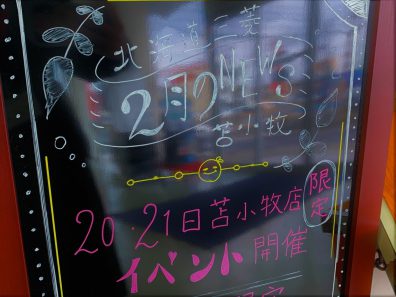 北海道三菱
2月のNEWS
苫小牧
20・21日苫小牧店限定
イベント開催